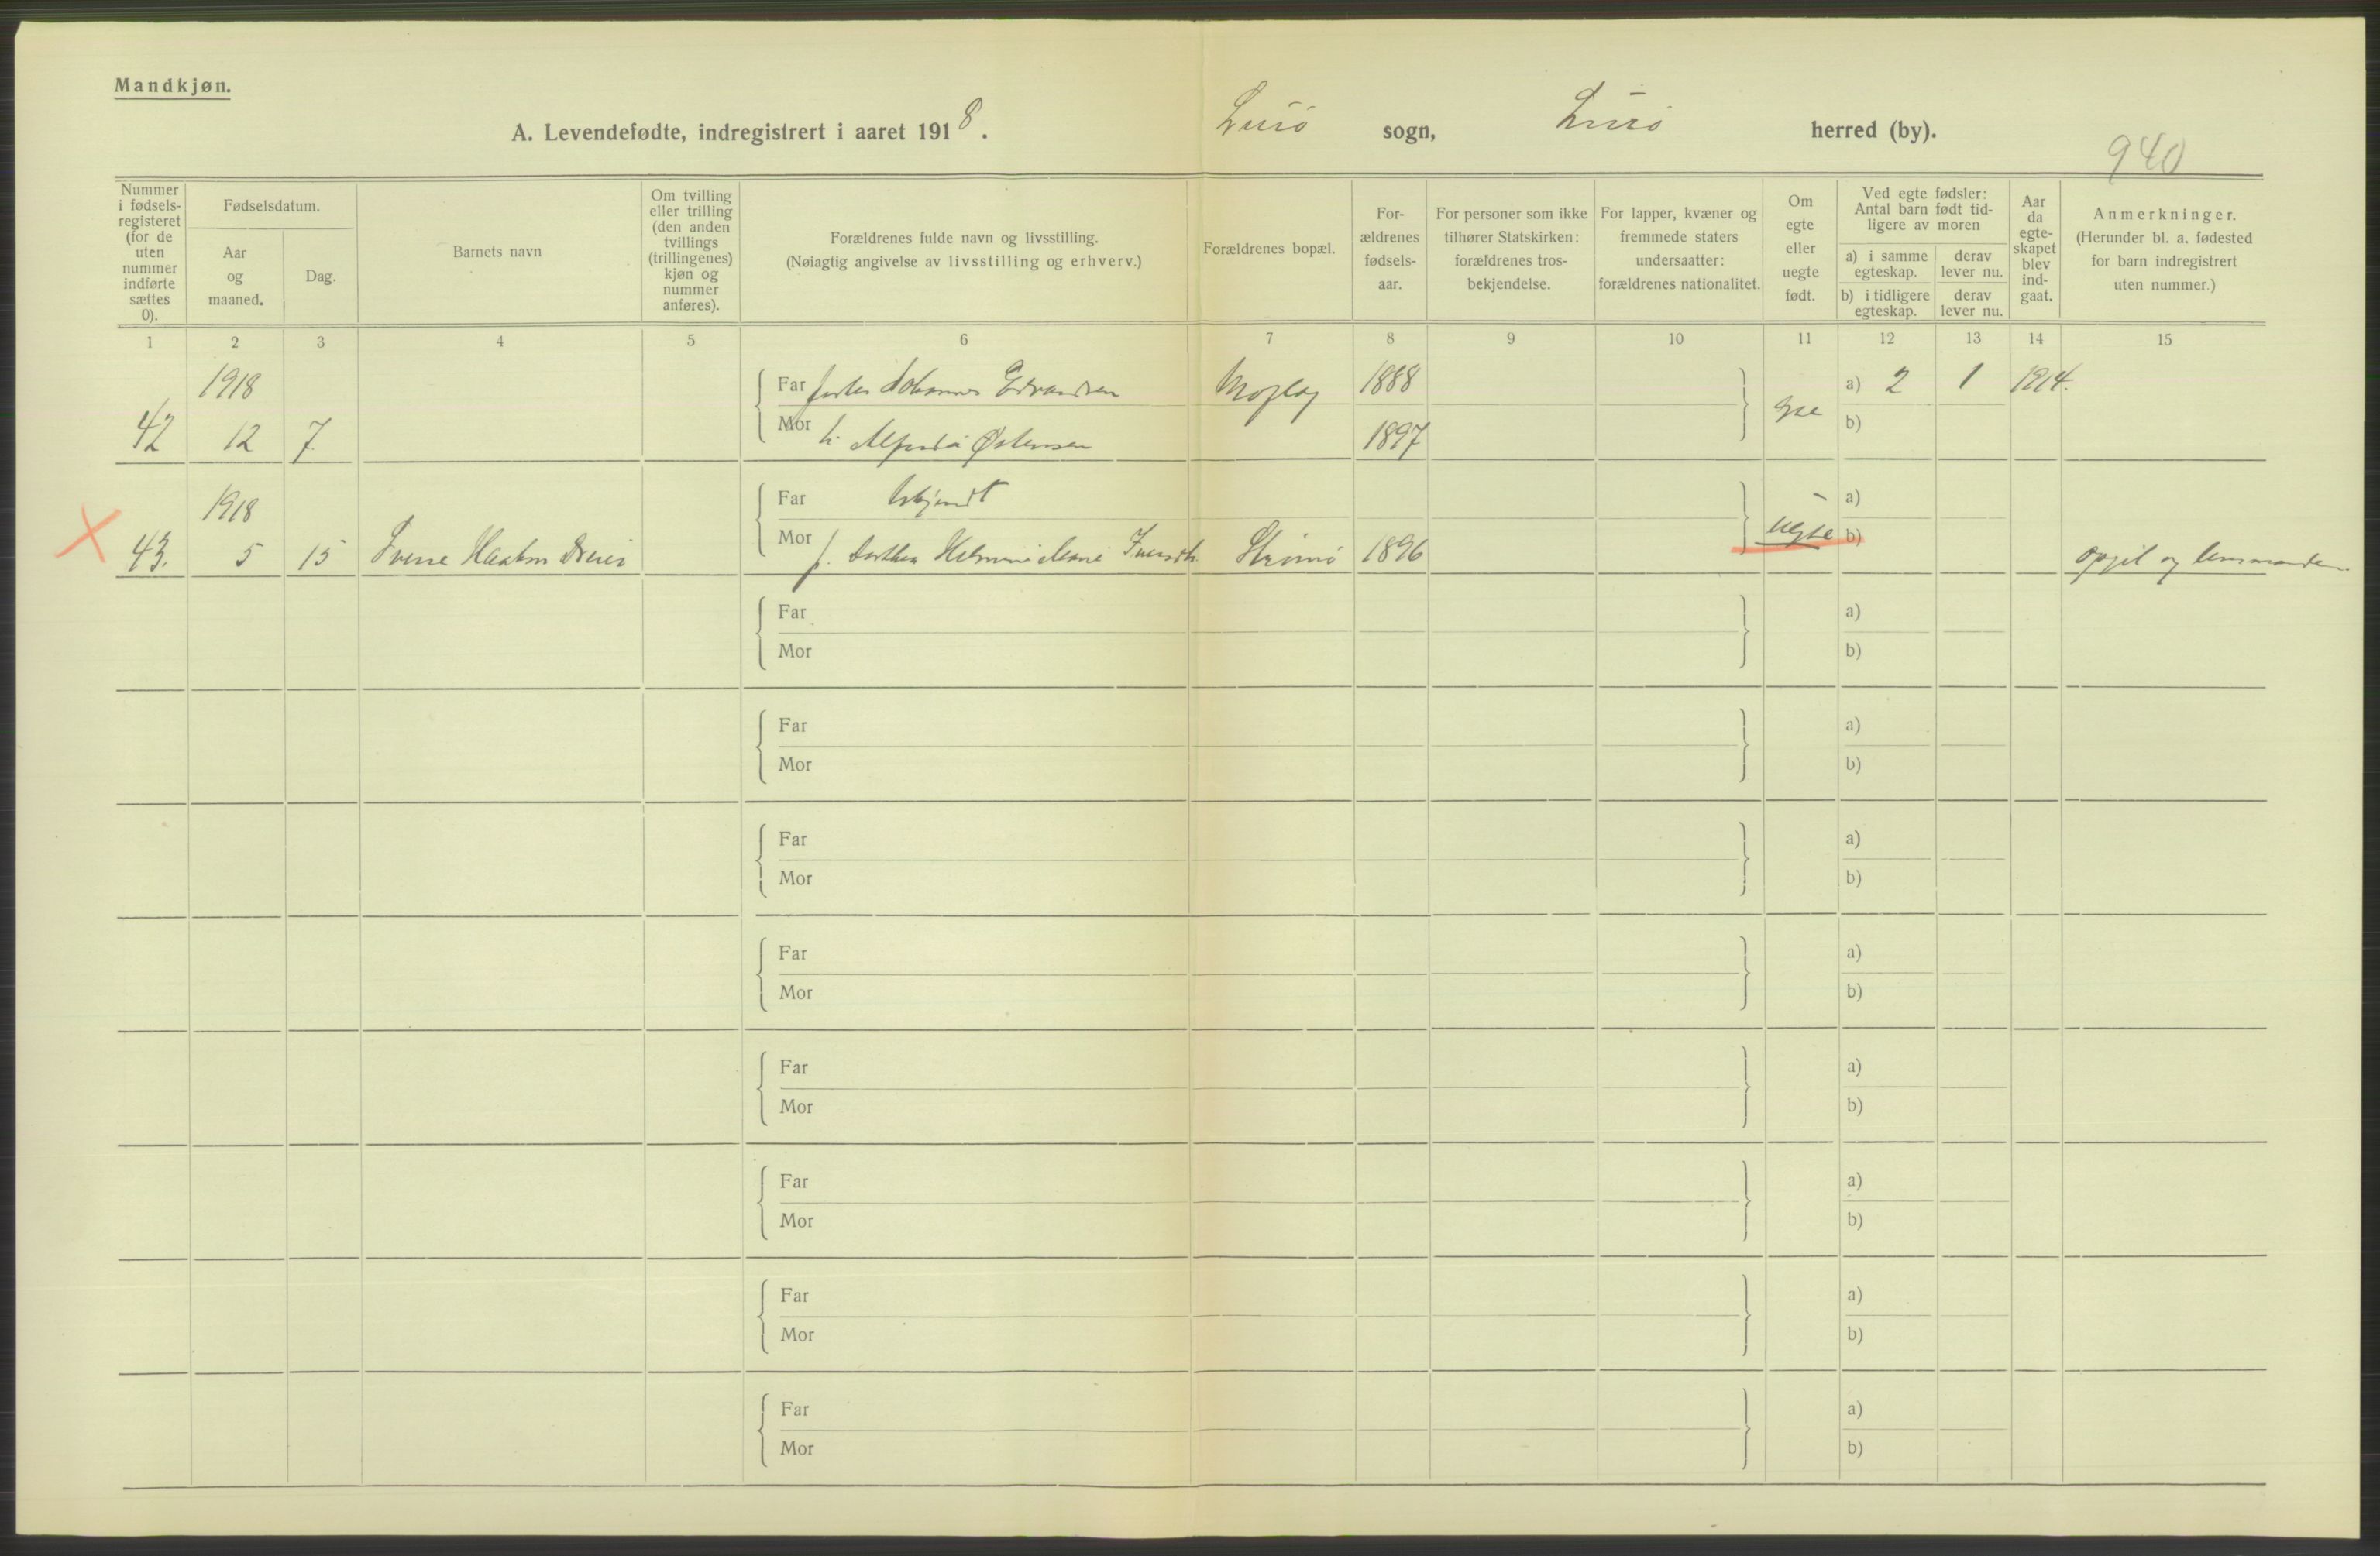 Mandkjøn.
A. Levendefødte, indregistrert i aaret 1918. Lurö sogn, Lurö herred (by).
940
Nummer i fødsels-registeret (for de uten nummer indførte sættes 0).
Fødselsdatum.
Aar og maaned.
Dag.
Barnets navn
Om tvilling eller trilling (den anden tvillings (trillingenes) kjøn og nummer anføres).
Forældrenes fulde navn og livsstilling.
(Nøiagtig angivelse av livsstilling og erhverv.)
Forældrenes bopæl.
For-ældrenes fødsels-aar.
For personer som ikke tilhører Statskirken: forældrenes tros-bekjendelse.
For lapper, kvæner og fremmede staters undersaatter: forældrenes nationalitet.
Om egte eller uegte født.
Ved egte fødsler: Antal barn født tid-ligere av moren
a) i samme egteskap.
derav lever nu.
b) i tidligere egteskap.
derav lever nu.
Aar da egte-skapet blev ind-gaat.
Anmerkninger.
(Herunder bl. a. fødested for barn indregistrert uten nummer.)
1 2 3 4 5 6 7 8 9 10 11 12 13 14 15
1918 Far Johannes 1888 a) 2 1 1914.
42 12 7. Mor h. Østensen 1897 b)
1918 Far Ukjendt a)
43. 5 15 Sverre Haakon Mor p. Dorthea Strömö 1896 uegte b)
Opgit og lensmanden.
Far a)
Mor b)
Far a)
Mor b)
Far a)
Mor b)
Far a)
Mor b)
Far a)
Mor b)
Far a)
Mor b)
Far a)
Mor b)
Far a)
Mor b)